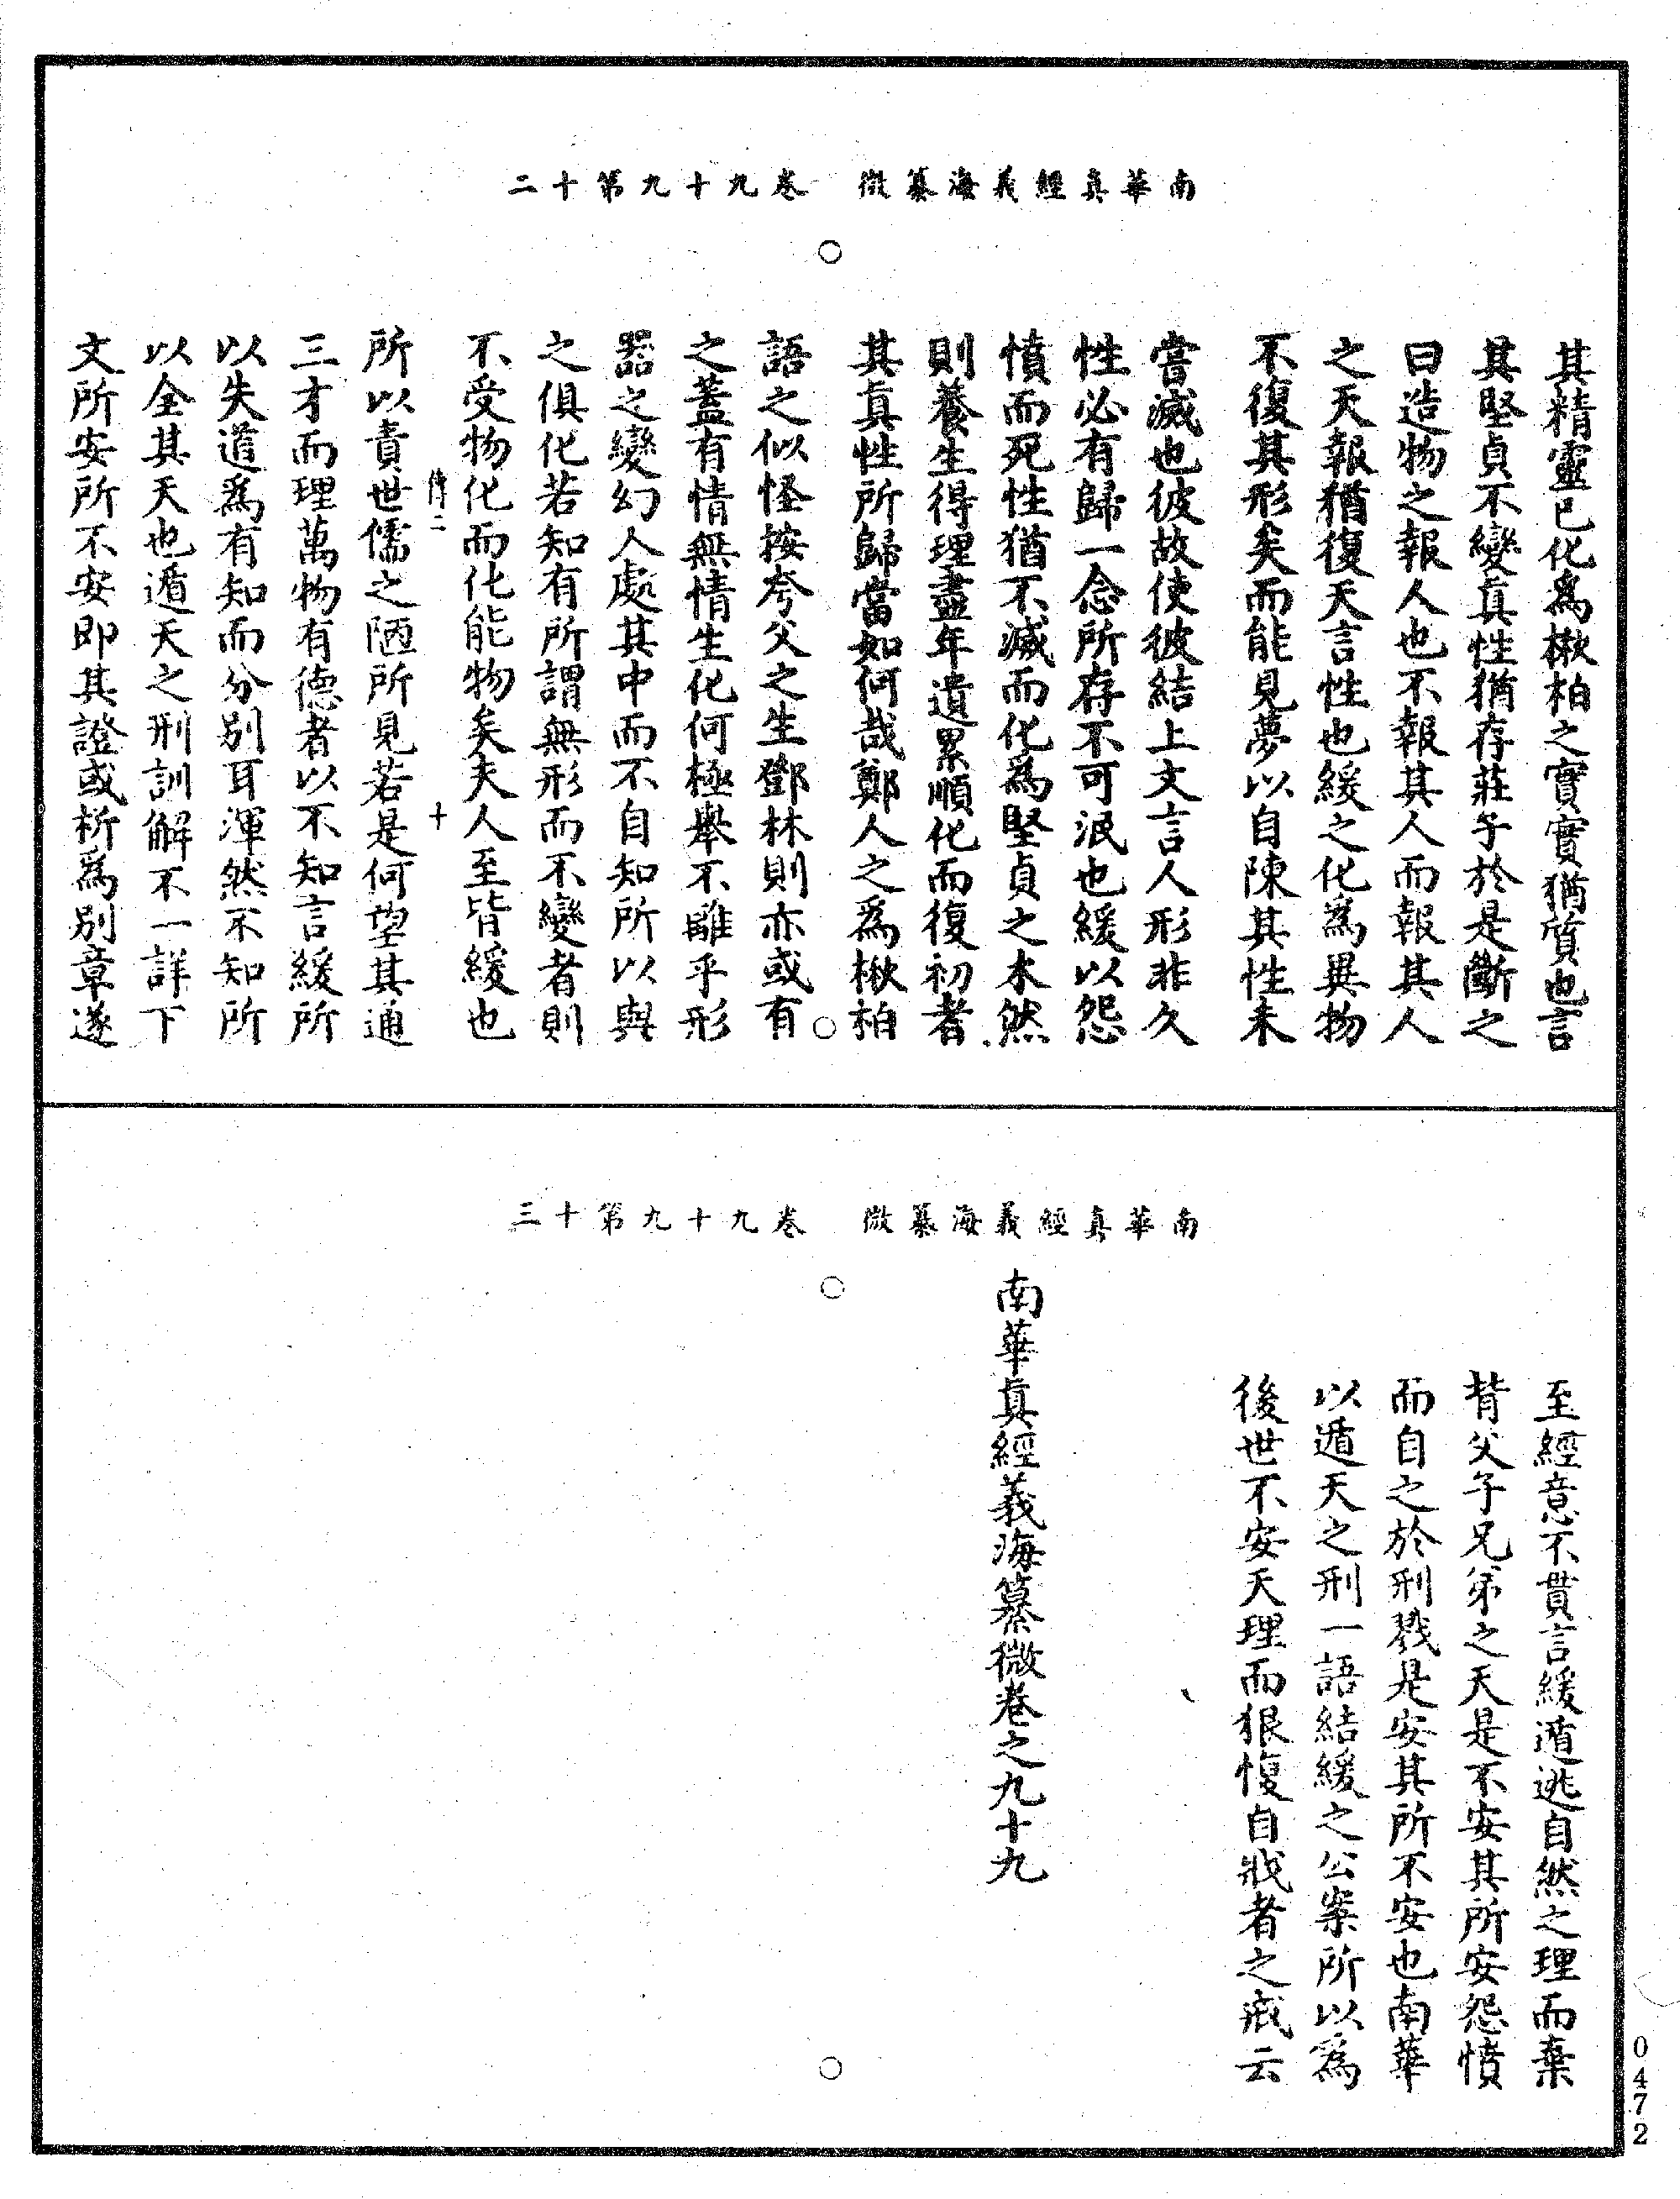 南華真經義海纂微　卷九十九第十二
其精靈已化爲楸柏之實實猶質也言
其堅貞不變真性猶存莊子於是斷之
曰造物之報人也不報其人而報其人
之天報猶復天言性也緩之化爲異物
不復其形矣而能見夢以自陳其性未
嘗滅也彼故使彼結上文言人形非久
性必有歸一念所存不可泯也緩以怨
憤而死性猶不滅而化爲堅貞之木然
則養生得理盡年遺累順化而復初者
其真性所歸當如何哉鄭人之爲楸柏
語之似怪按夸父之生鄧林則亦或有
之蓋有情無情生化何極舉不離乎形
器之變幻人處其中而不自知所以與
之俱化若知有所謂無形而不變者則
不受物化而化能物矣夫人至皆緩也
所以責世儒之陋所見若是何望其通
三才而理萬物有德者以不知言緩所
以失道爲有知而分別耳渾然不知所
以全其天也遁天之刑訓解不一詳下
文所安所不安即其證或析爲別章遂
南華真經義海纂微　卷九十九第十三
至經意不貫言緩遁逃自然之理而棄
背父子兄弟之天是不安其所安怨憤
而自之於刑戮是安其所不安也南華
以遁天之刑一語結緩之公案所以爲
後世不安天理而狠愎自戕者之戒云
南華真經義海纂微卷之九十九
0472